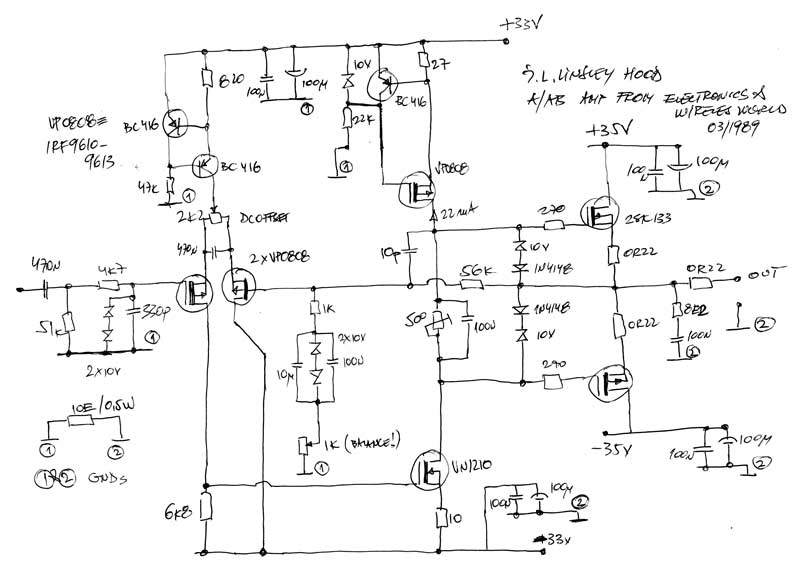 +33V
J.L. LINSLEY HOOD
A/AB AMP FROM ELECTRONICS &
WIRELES WORLD
03/1989
820
100N
100M
1
10V
BC416
27
VP0808≡
IRF9610-
9613
BC416
22K
1
BC416
VP0808
+35V
100N
100M
2
47K
1
2K2
DC OFFSET
22mA
270
2SK133
470N
2XVP0808
10p
10V
1N4148
0R22
470N
4K7
56K
0R22
OUT
51K
330P
1
1K
500
100N
1N4148
10V
0R22
8R2
100N
1
2
2X10V
2X10V
10M
100N
270
10E/0,5W
1
2
1K (BALANCE!)
1
-35V
100N
100M
2
1R2 GNDs
VN1210
6K8
10
100N
100M
2
-33V